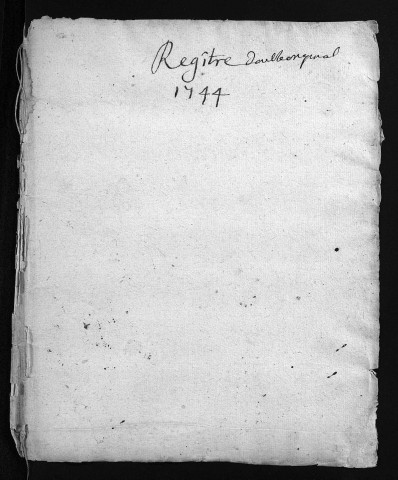 Regître double original
1744